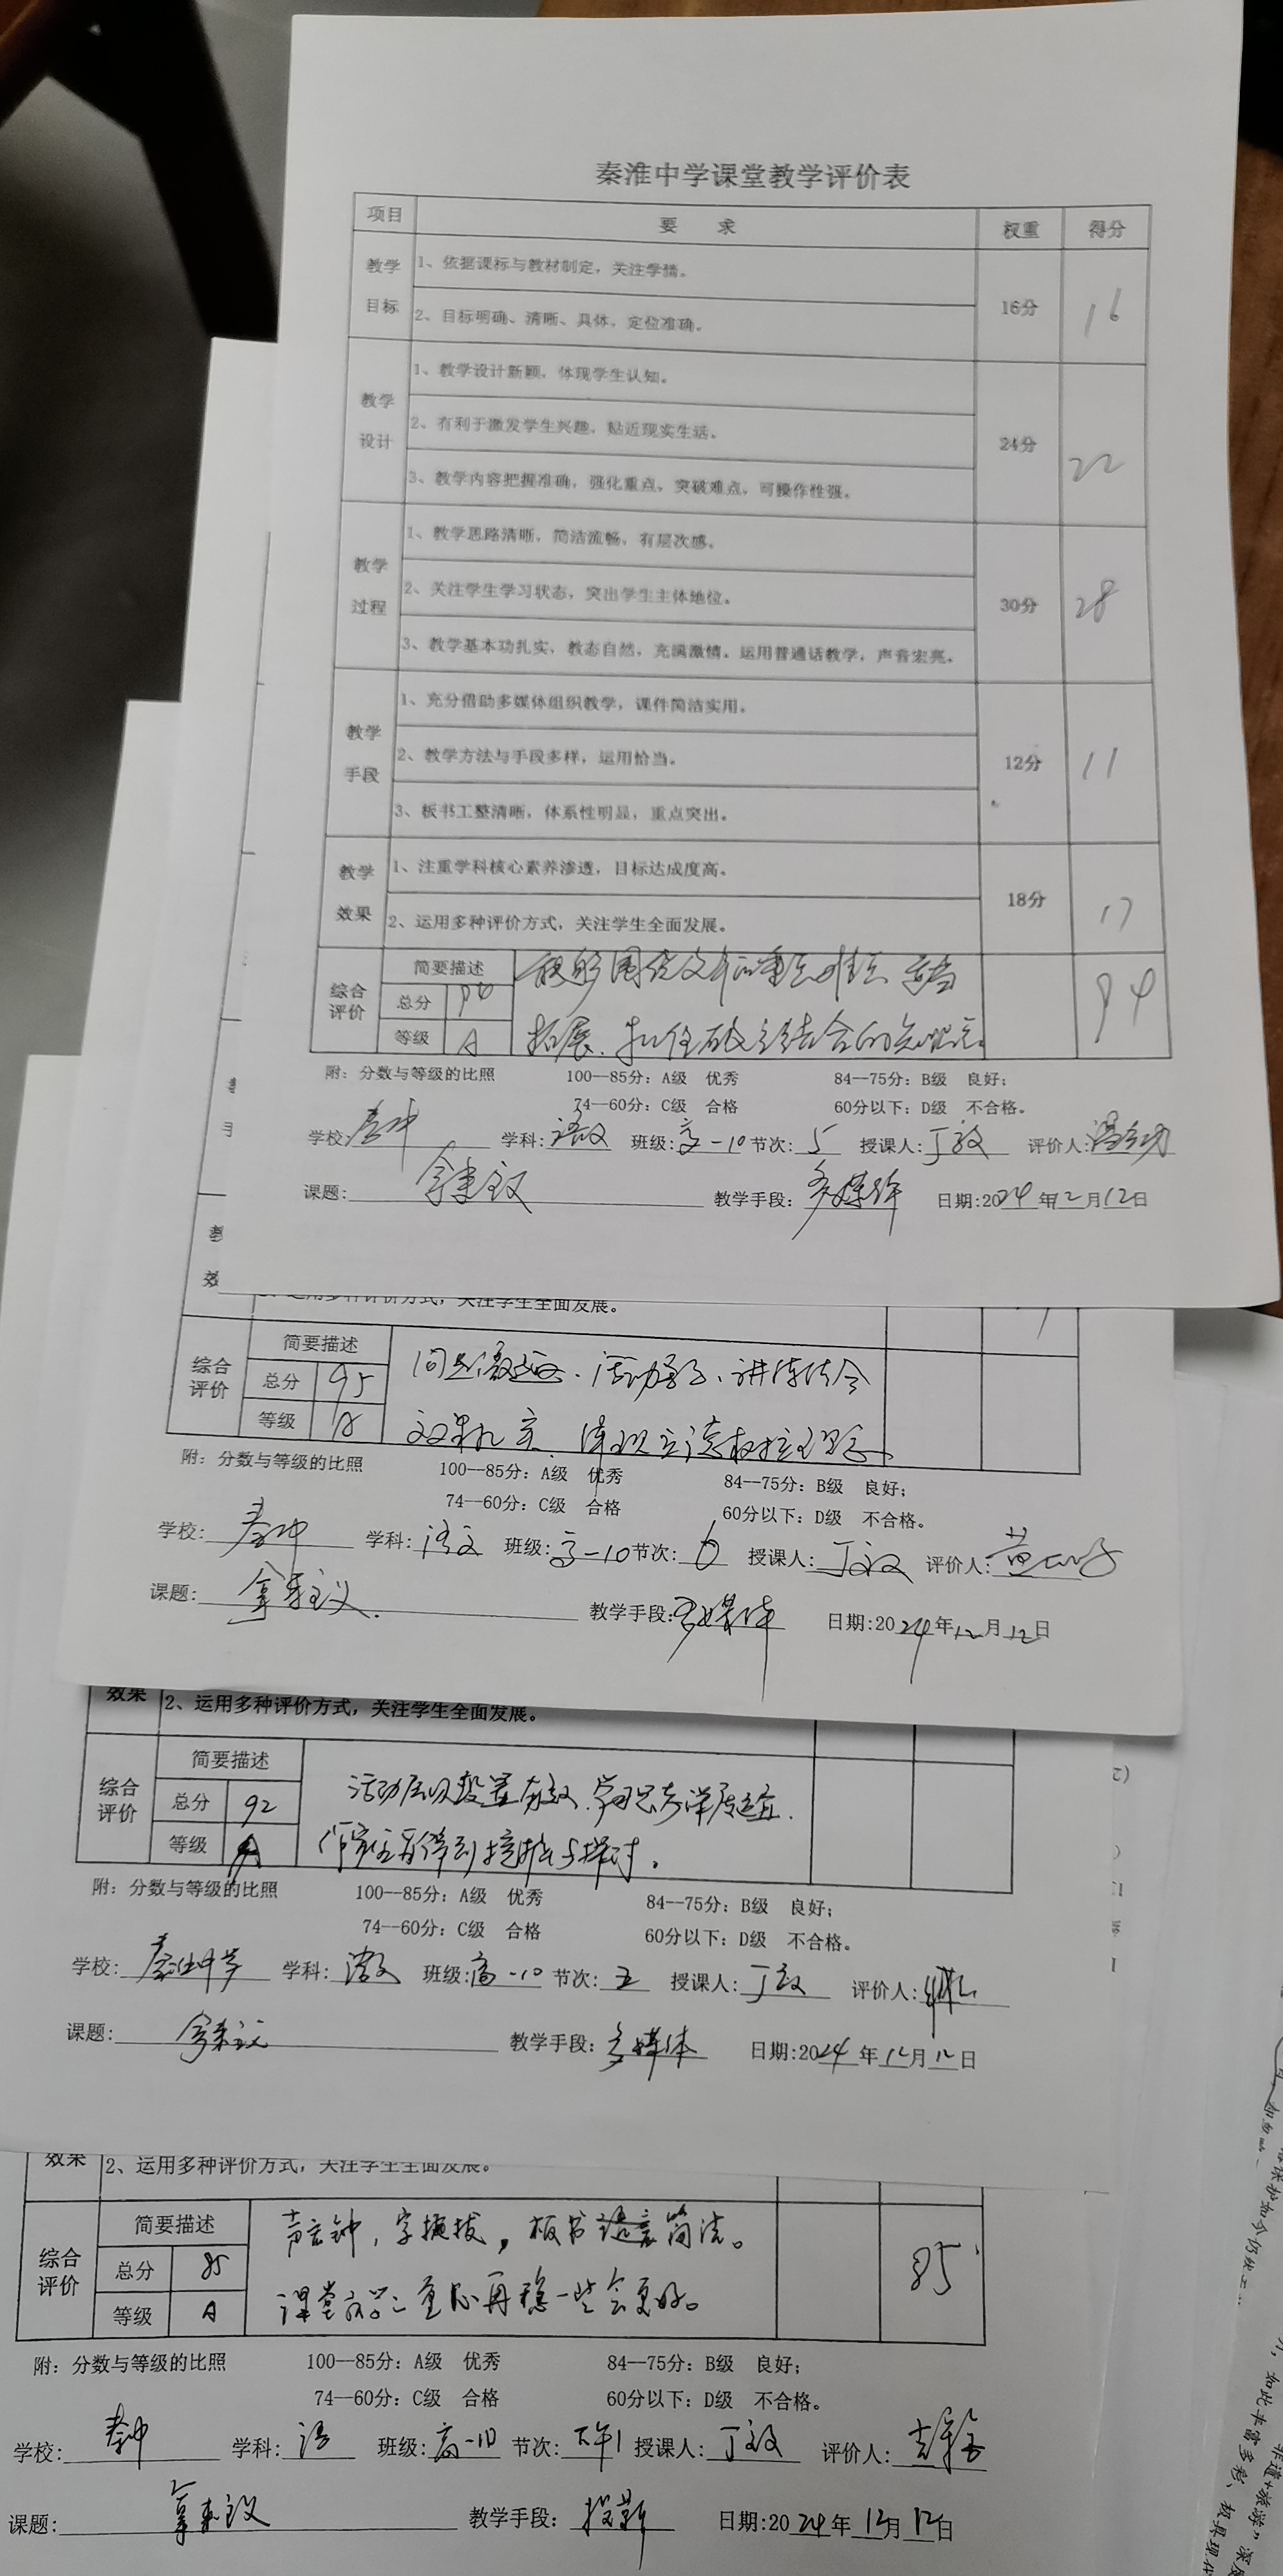 秦淮中学课堂教学评价表
项目 要 求 权重 得分
教学目标 1、依据课标与教材制定，关注学情。 16分 16
2、目标明确、清晰、具体，定位准确。
教学设计 1、教学设计新颖，体现学生认知。 24分 22
2、有利于激发学生兴趣，贴近现实生活。
3、教学内容把握准确，强化重点，突破难点，可操作性强。
教学过程 1、教学思路清晰，简洁流畅，有层次感。 30分 28
2、关注学生学习状态，突出学生主体地位。
3、教学基本功扎实，教态自然，充满激情。运用普通话教学，声音宏亮。
教学手段 1、充分借助多媒体组织教学，课件简洁实用。 12分 11
2、教学方法与手段多样，运用恰当。
3、板书工整清晰，体系性明显，重点突出。
教学效果 1、注重学科核心素养渗透，目标达成度高。 18分 17
2、运用多种评价方式，关注学生全面发展。
综合评价 简要描述 能够围绕文本的重点难点 适当
总分 94 94
等级 A 拓展，
附：分数与等级的比照 100--85分：A级 优秀 84--75分：B级 良好；
74--60分：C级 合格 60分以下：D级 不合格。
学校：秦中 学科：语文 班级：高一10 节次：5 授课人：丁敏 评价人：
课题：拿来主义 教学手段：多媒体 日期：2024年12月12日
2、运用多种评价方式，关注学生全面发展。
综合评价 简要描述 活动 讲练结合
总分 95
等级 A 效果扎实
附：分数与等级的比照 100--85分：A级 优秀 84--75分：B级 良好；
74--60分：C级 合格 60分以下：D级 不合格。
学校：秦中 学科：语文 班级：高一10 节次：6 授课人：丁敏 评价人：黄
课题：拿来主义. 教学手段：多媒体 日期：2024年12月12日
效果 2、运用多种评价方式，关注学生全面发展。
综合评价 简要描述 活动层次设置有效，
总分 92
等级 A 得到 与探讨。
附：分数与等级的比照 100--85分：A级 优秀 84--75分：B级 良好；
74--60分：C级 合格 60分以下：D级 不合格。
学校：秦淮中学 学科：语文 班级：高一10 节次：五 授课人：丁敏 评价人：
课题：拿来主义 教学手段：多媒体 日期：2024年12月12日
效果 2、运用多种评价方式，关注学生全面发展。
综合评价 简要描述 声宏钟，字挺拔，板书语言简洁。
总分 85 85
等级 A 课堂 重心再稳一些会更好。
附：分数与等级的比照 100--85分：A级 优秀 84--75分：B级 良好；
74--60分：C级 合格 60分以下：D级 不合格。
学校：秦中 学科：语 班级：高一10 节次：下午1 授课人：丁敏 评价人：
课题：拿来主义 教学手段：投影 日期：2024年12月12日